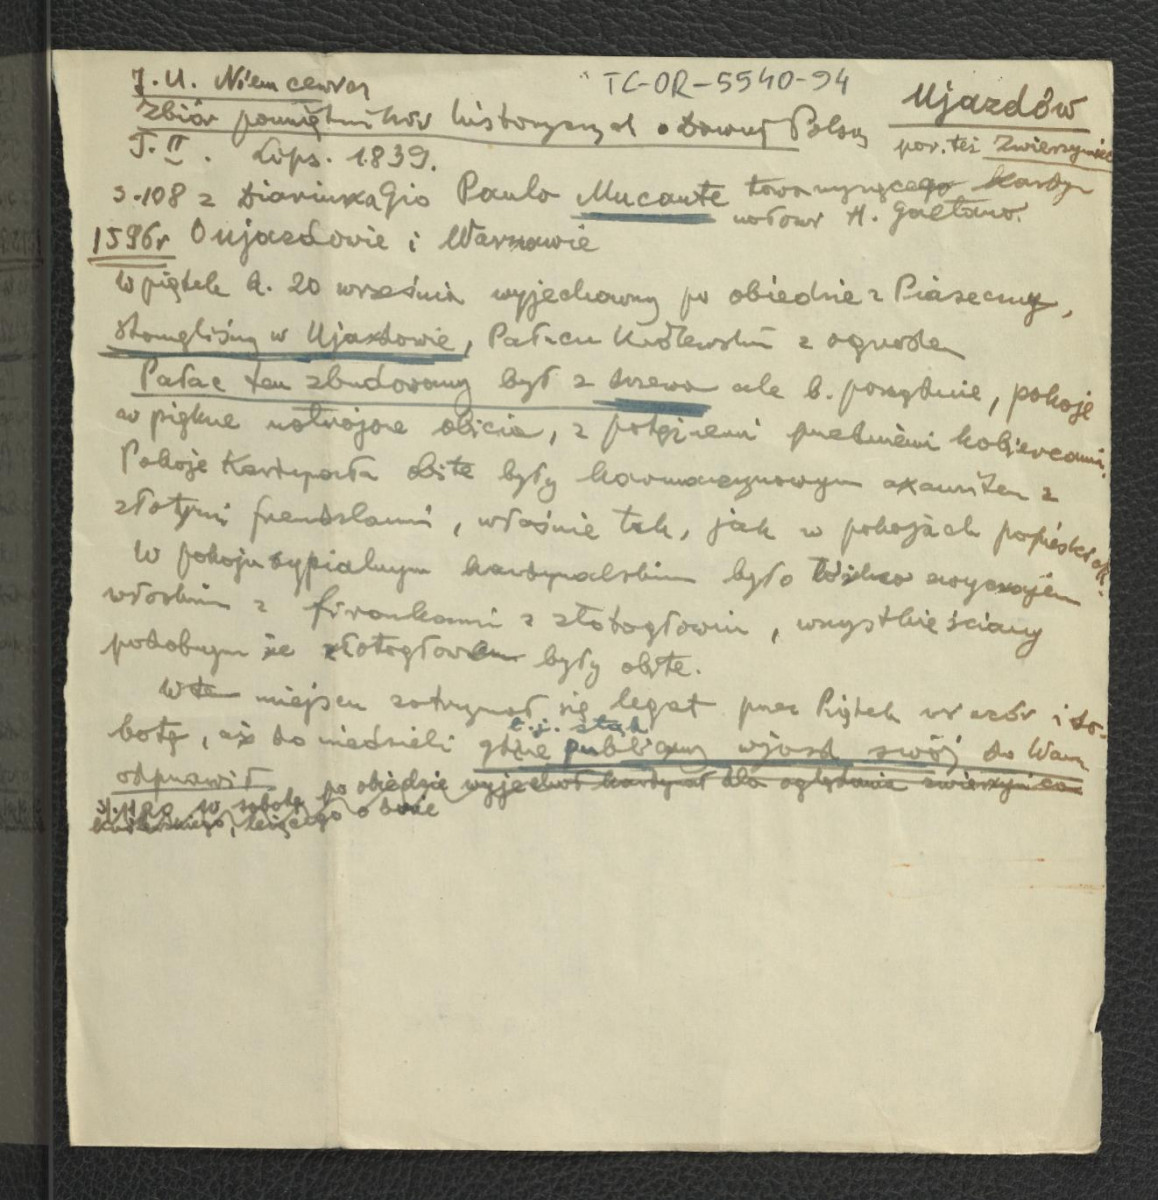 J. U. Niemcewicz
TC-OR-5540-94
Ujazdów
Zbiór pamiętników historycznych o dawnej Polsce
por. też Zwierzyniec
T. II. Lips. 1839.
s. 108 z Diariusza Gio Paulo Mucante towarzyszącego Kardy-
nałowi H. Gaetano.
1596r O Ujazdowie i Warszawie
W piątek d. 20 września wyjechawszy po obiedzie z Piaseczny,
stanęliśmy w Ujazdowie, Pałacu Królewskim z ogrodem
Pałac ten zbudowany był z drzewa ale b. porządnie, pokoje
w piękne ustrojone obicia, z potężnemi kobiercami.
Pokoje Kardynała obite były karmazynowym axamitem z
złotymi frendzlami, właśnie tak, jak w pokojach papieskich.
W pokoju sypialnym kardynalskim było łóżko zwyczajem
włoskim z firankami z złotogłowiu, wszystkie ściany
podobnym że złotogłowem były obite.
W tem miejscu zatrzymał się legat przez Piątek wieczór i so-
botę, aż do niedzieli gdzie publiczny wjazd swój do Warsz
t.j. stąd
odprawił
po obiedzie wyjechał kardynał dla oglądania zwierzyńca
w sobotę
królewskiego, leżącego o dwie